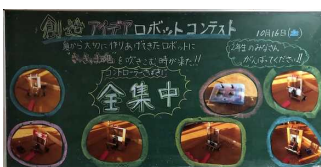 創造アイデアロボットコンテスト
10月16日(土)
夏から大切に作りあげてきたロボットに
を吹きこむ時が来た!!
2年生のみなさん
がんばってください!!
コントローラーさばきに
全集中